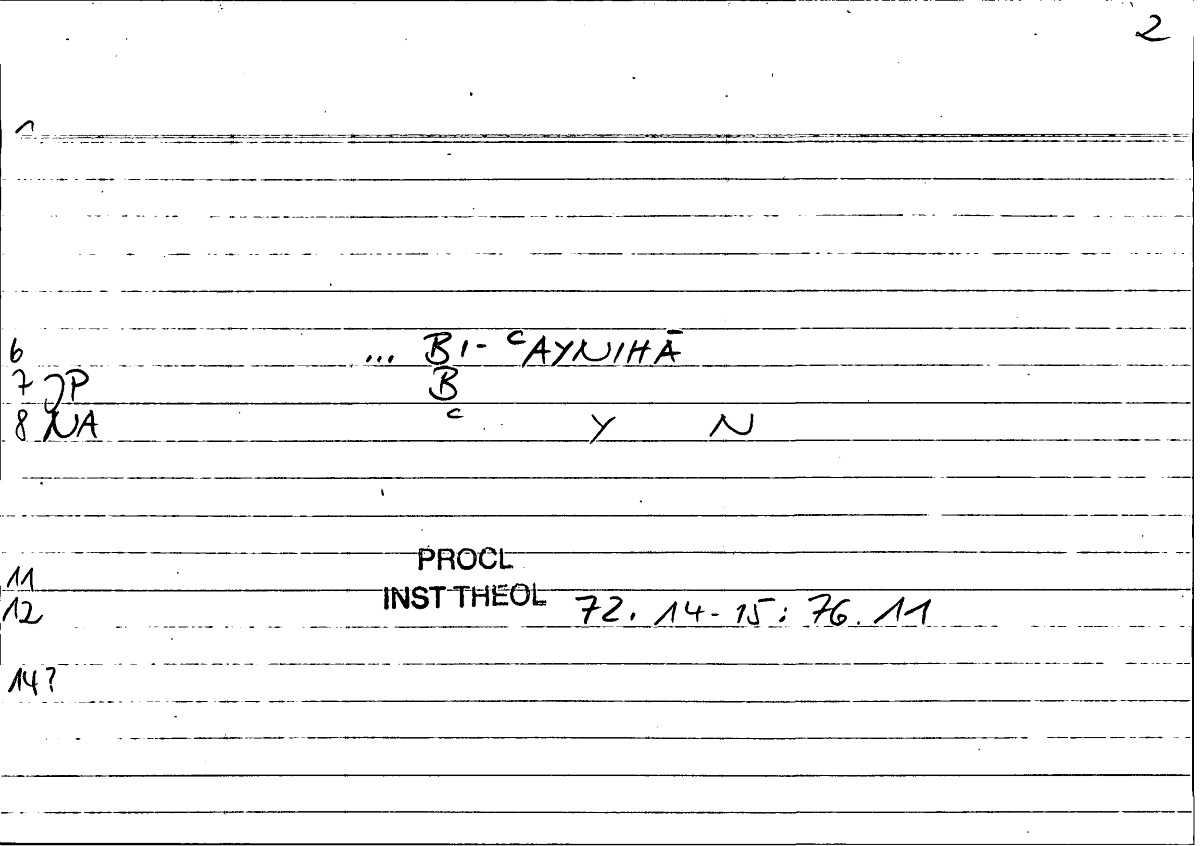 2
1
6 ... BI- ᶜAYNIHĀ
7 JP B
8 NA ᶜ Y N
PROCL
11
INST THEOL
12 72. 14-15 : 76. 11
14?